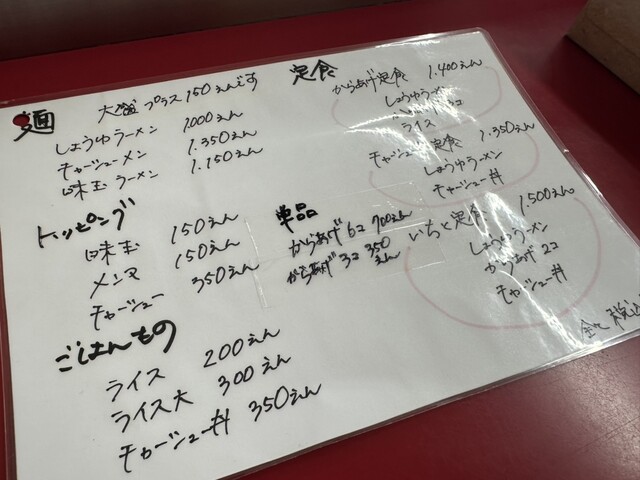 麺
大盛プラス150えんです
しょうゆラーメン 1.000えん
チャーシューメン 1.350えん
味玉ラーメン 1.150えん
トッピング
味玉 150えん
メンマ 150えん
チャーシュー 350えん
ごはんもの
ライス 200えん
ライス大 300えん
チャーシュー丼 350えん
単品
からあげ6コ 700えん
からあげ3コ 350えん
定食
からあげ定食 1.400えん
しょうゆラーメン
ライス
チャーシュー定食 1.350えん
しょうゆラーメン
チャーシュー丼
いちと定食 1.500えん
しょうゆラーメン
からあげ2コ
チャーシュー丼
税込